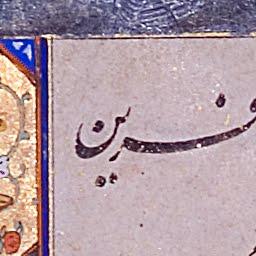 فرین